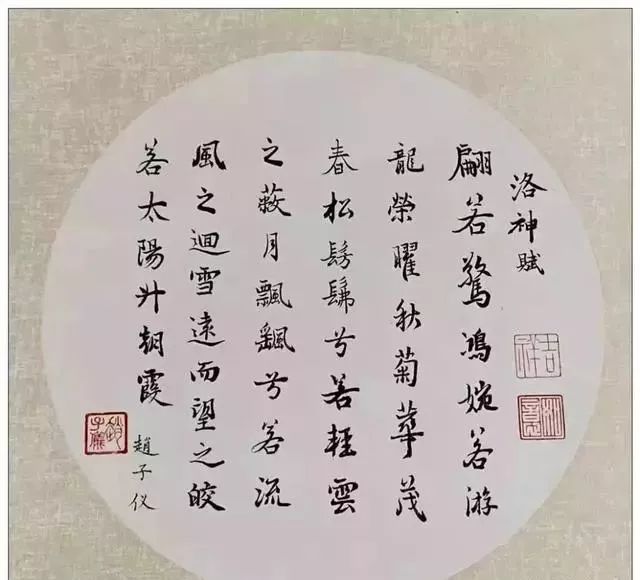 洛神賦
翩若驚鴻婉若游
龍榮曜秋菊華茂
春松髣髴兮若輕雲
之蔽月飄颻兮若流
風之迴雪遠而望之皎
若太陽升朝霞
趙子仪
吉祥